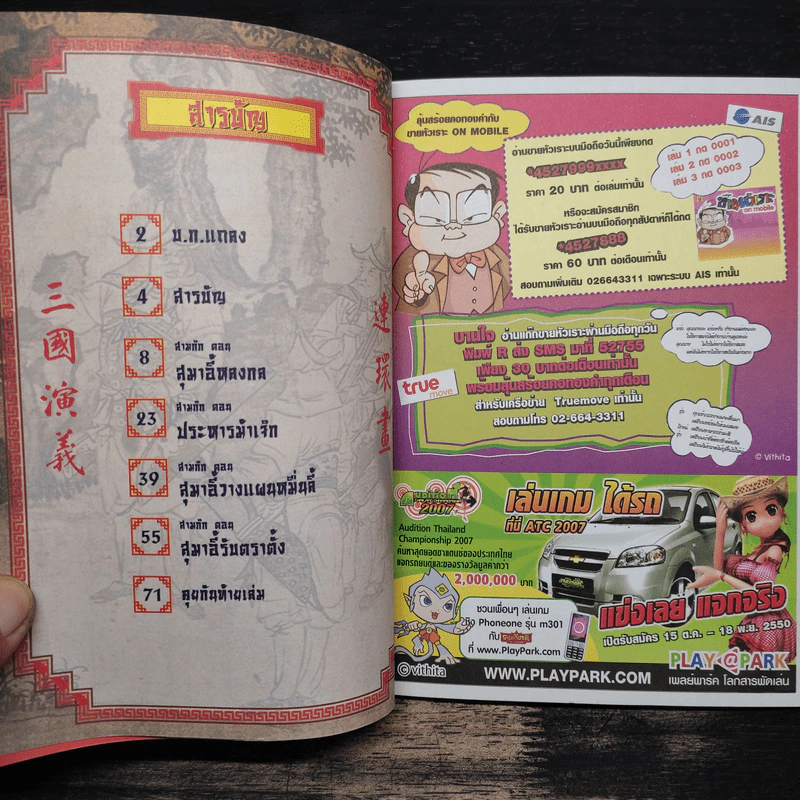 สารบัญ
三國演義
連環畫
2 บ.ก.แถลง
4 สารบัญ
8 สามก๊ก ตอน
สุมาอี้หลงกล
23 สามก๊ก ตอน
ประหารม้าเจ๊ก
39 สามก๊ก ตอน
สุมาอี้วางแผนหมื่นลี้
55 สามก๊ก ตอน
สุมาอี้รับตราตั้ง
71 คุยกันท้ายเล่ม
ลุ้นสร้อยคอทองคำกับ
ขายหัวเราะ ON MOBILE
AIS
อ่านขายหัวเราะบนมือถือวันนี้เพียงกด
*4527999xxxx
ราคา 20 บาท ต่อเล่มเท่านั้น
เล่ม 1 กด 0001
เล่ม 2 กด 0002
เล่ม 3 กด 0003
หรือจะสมัครสมาชิก
ได้รับขายหัวเราะอ่านบนมือถือทุกสัปดาห์ก็ได้กด
*4527888
ราคา 60 บาท ต่อเดือนเท่านั้น
สอบถามเพิ่มเติม 026643311 เฉพาะระบบ AIS เท่านั้น
ขายหัวเราะ
on mobile
บานใจ อ่านแก๊กขายหัวเราะผ่านมือถือทุกวัน
พิมพ์ R ส่ง SMS มาที่ 52755
เพียง 30 บาทต่อเดือนเท่านั้น
พร้อมลุ้นสร้อยคอทองคำทุกเดือน
สำหรับเครือข่าย Truemove เท่านั้น
สอบถามโทร 02-664-3311
true
move
© Vithita
2007
Audition Thailand
Championship 2007
ค้นหาสุดยอดขาแดนซ์ของประเทศไทย
แจกรถยนต์และของรางวัลมูลค่ากว่า
2,000,000 บาท
เล่นเกม ได้รถ
ที่นี่ ATC 2007
แข่งเลย แจกจริง
เปิดรับสมัคร 15 ต.ค. – 18 พ.ย. 2550
ชวนเพื่อนๆ เล่นเกม
ชิง Phoneone รุ่น m301
กับ
ที่ www.PlayPark.com
©vithita
WWW.PLAYPARK.COM
PLAY@PARK
เพลย์พาร์ค โลกสารพัดเล่น